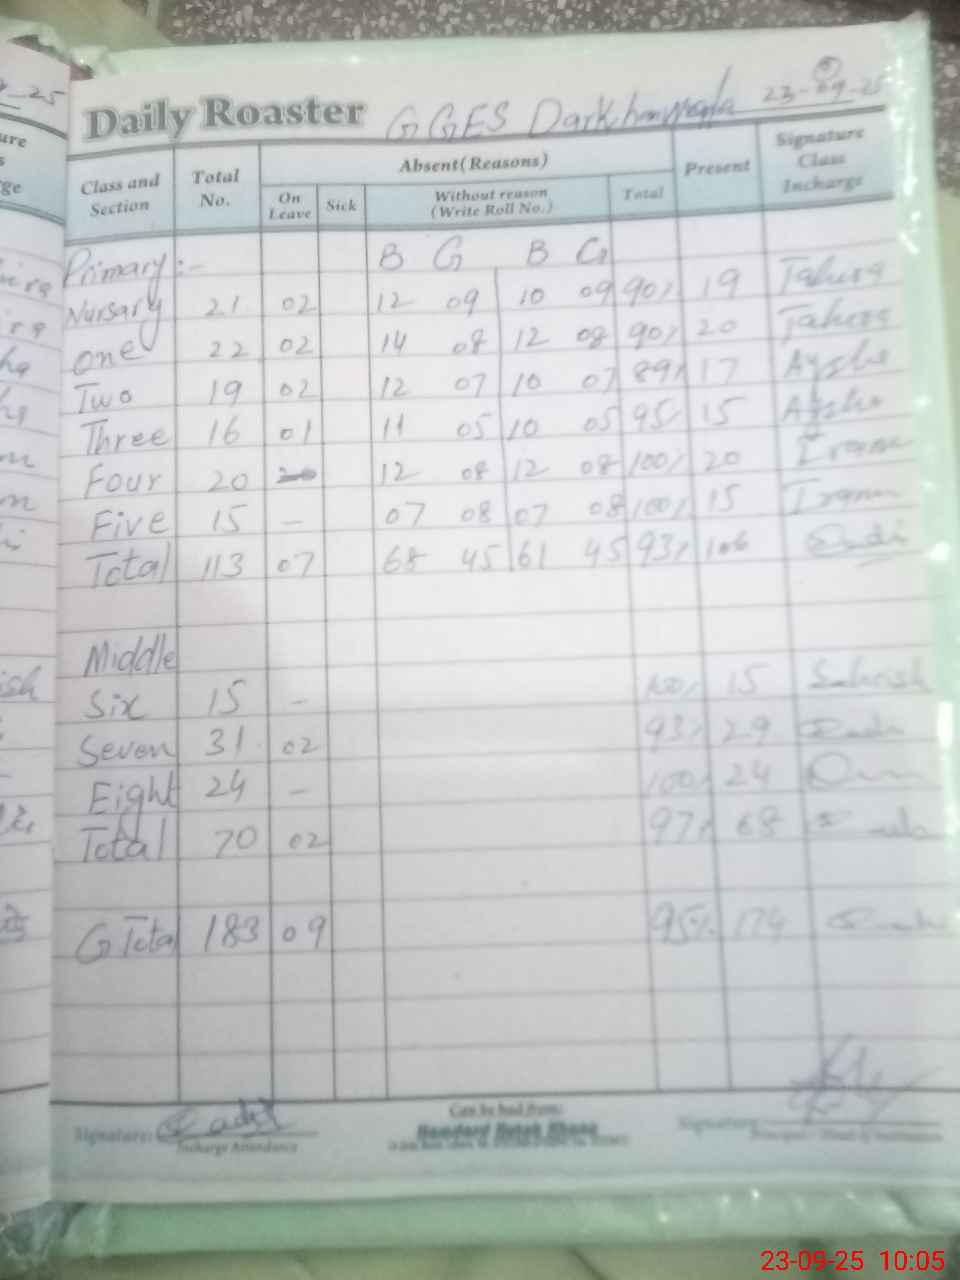 Daily Roaster GGES 23-09-25
Class and Section Total No. Absent(Reasons) Present Signature Class Incharge
On Leave Sick Without reason (Write Roll No.) Total
Primary:- B G B G
Nursary 21 02 12 09 10 09 90% 19 Tahira
One 22 02 14 08 12 08 90% 20
Two 19 02 12 07 10 07 89% 17
Three 16 01 11 05 10 05 95% 15
Four 20 12 08 12 08 100% 20 Iram
Five 15 - 07 08 07 08 100% 15 Iram
Total 113 07 68 45 61 45 93% 106
Middle
Six 15 - 100% 15 Sehrish
Seven 31 02 93% 29
Eight 24 - 100% 24
Total 70 02 97% 68
G Total 183 09 95% 174
Signature:
Incharge Attendance
Can be had from:
Hamdard Kutab Khana
Signature
23-09-25 10:05